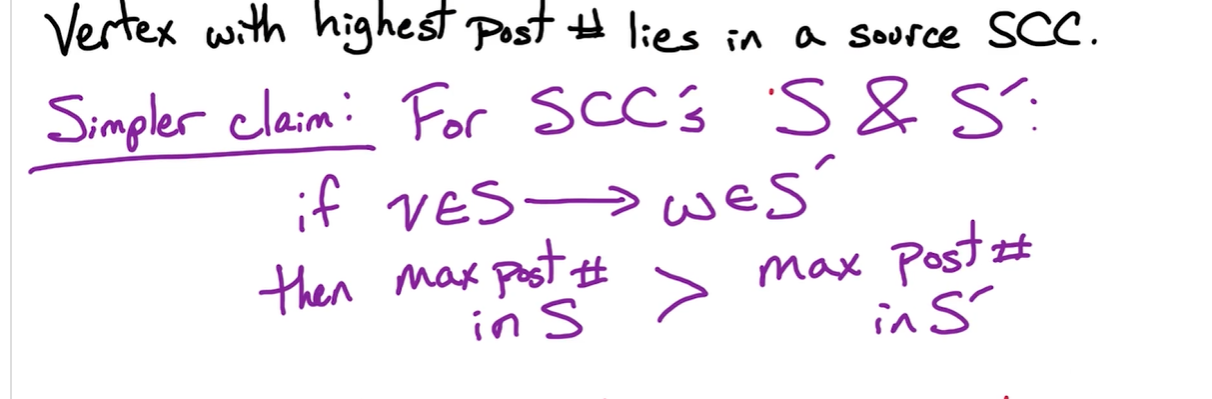 Vertex with highest post # lies in a source SCC.
Simpler claim: For SCC's S & S′:
if v∈S ⟶ w∈S′
then max post # in S > max post # in S′